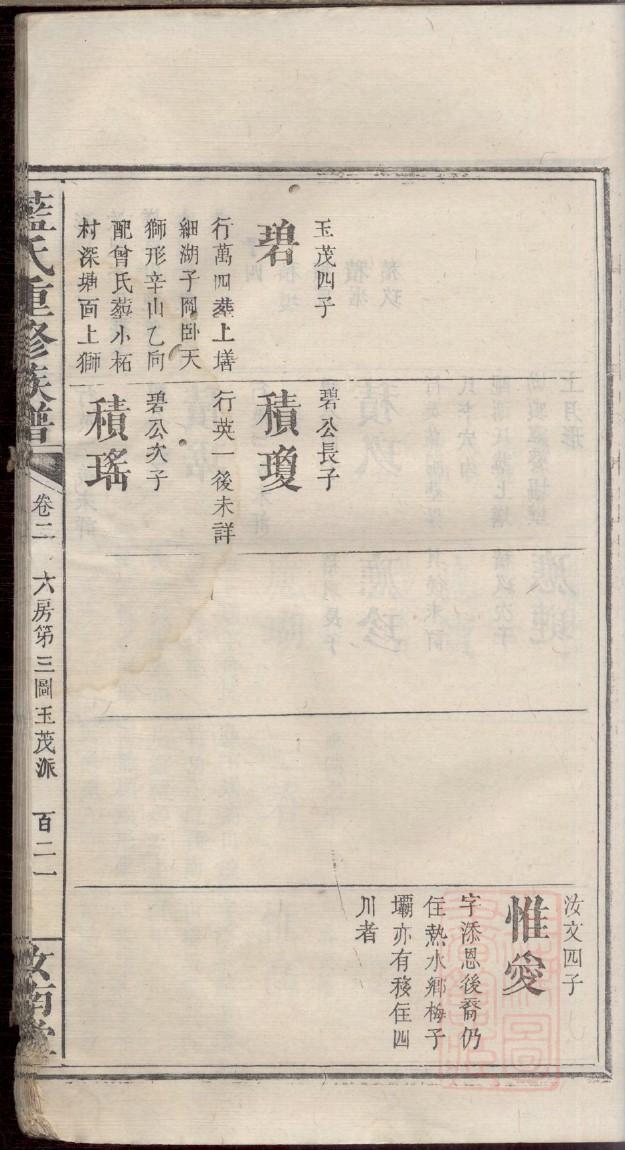 玉茂四子
碧
行萬四葬上墡
細湖子岡卧天
獅形辛山乙向
配曾氏葬小柘
村深塘面上獅
碧公長子
積瓊
行英一後未詳
碧公次子
積瑤
汝文四子
惟愛
字添恩後裔仍
住熱水鄉梅子
壩亦有移住四
川者
藍氏重修族譜
卷二
六房第三圖玉茂派
百二一
汝南堂